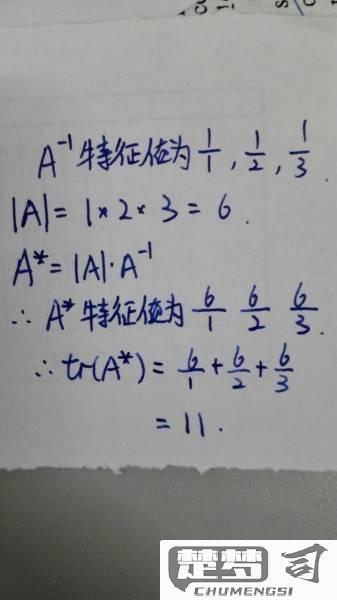 A⁻¹ 特征值为 1/1 , 1/2 , 1/3 .
|A| = 1 × 2 × 3 = 6 .
A* = |A| · A⁻¹
∴ A* 特征值为 6/1 6/2 6/3 .
∴ tr(A*) = 6/1 + 6/2 + 6/3
= 11 .
楚梦司
CHUMENGSI